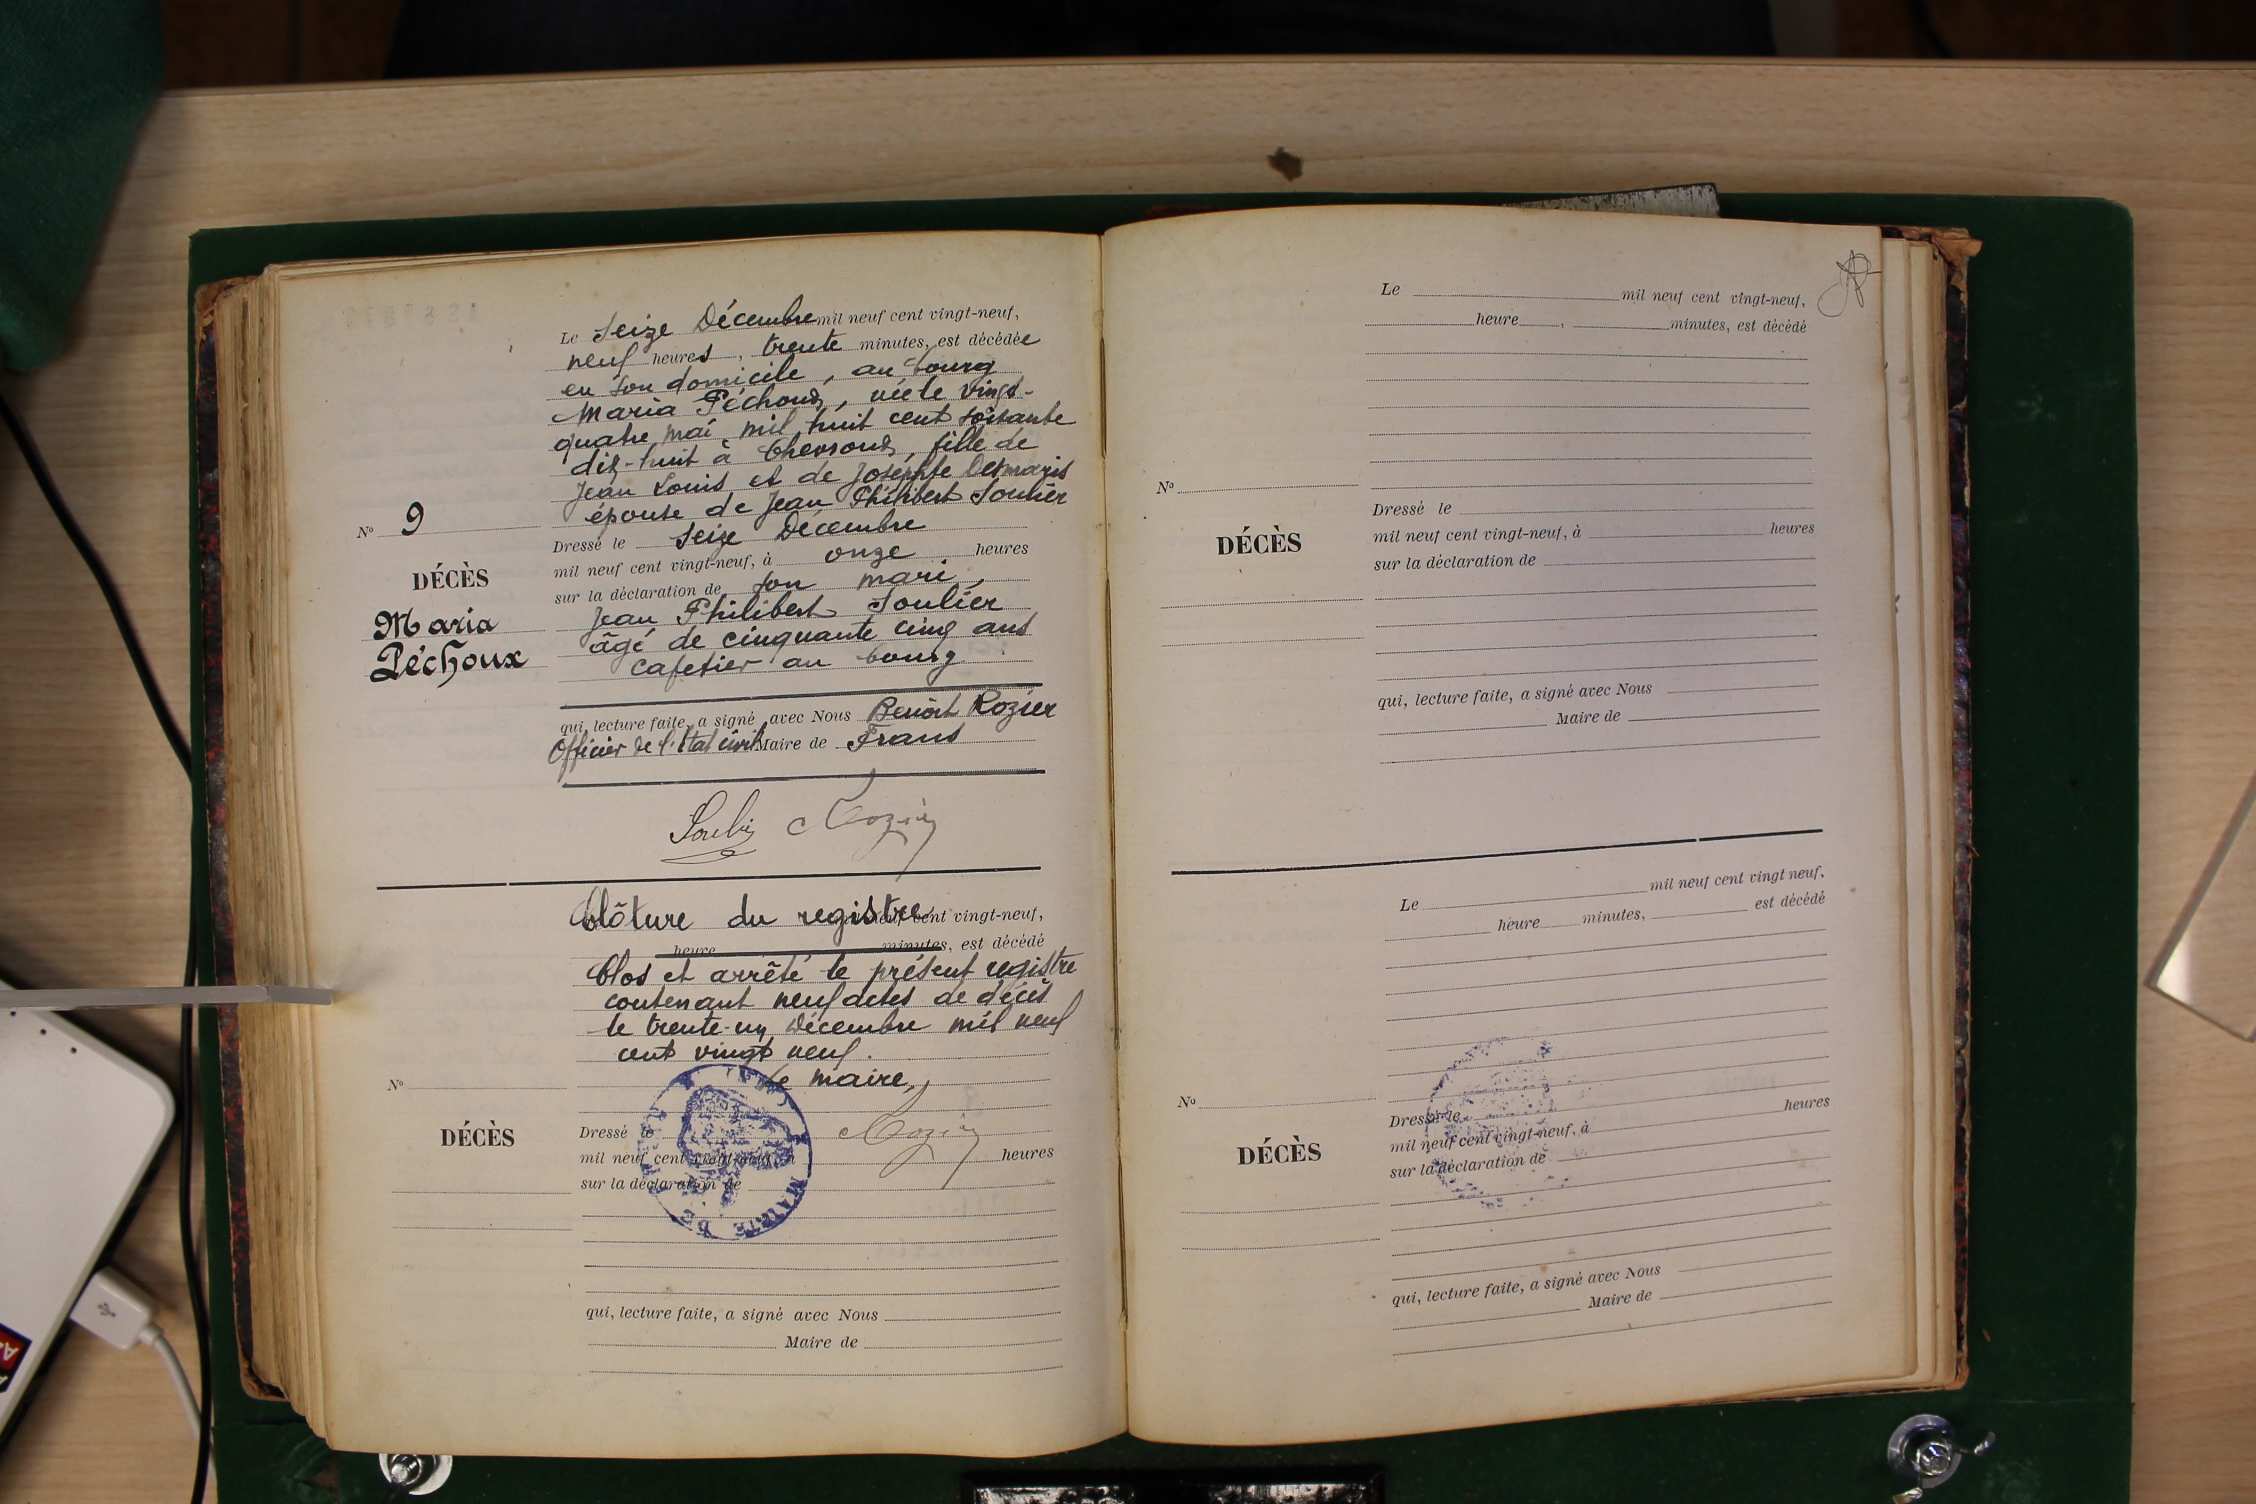 Le Seize Décembre mil neuf cent vingt-neuf,
neuf heures, trente minutes, est décédée
en son domicile, au bourg
Maria Péchoux, née le vingt-
quatre mai mil huit cent soixante
dix-huit à Chevroux, fille de
Jean Louis et de Josephte Desmaris
épouse de Jean Philibert Soulier
Nº 9
Dressé le Seize Décembre
mil neuf cent vingt-neuf, à onze heures
DÉCÈS
sur la déclaration de son mari,
Maria
Jean Philibert Soulier
Péchoux
âgé de cinquante cinq ans
cafetier au bourg
qui, lecture faite, a signé avec Nous Benoît Rozier
Officier de l'Etat civil Maire de Frans
Soulier Rozier
Clôture du registre neuf cent vingt-neuf,
heure minutes, est décédé
Clos et arrêté le présent registre
contenant neuf actes de décès
le trente-un décembre mil neuf
cent vingt neuf.
Le maire,
Nº
Rozier
DÉCÈS
Dressé le
mil neuf cent vingt-neuf, à heures
sur la déclaration de
MAIRIE DE
qui, lecture faite, a signé avec Nous
Maire de
Le mil neuf cent vingt-neuf,
heure , minutes, est décédé
Nº
Dressé le
DÉCÈS
mil neuf cent vingt-neuf, à heures
sur la déclaration de
qui, lecture faite, a signé avec Nous
Maire de
Le mil neuf cent vingt neuf,
heure minutes, est décédé
Nº
Dressé le heures
DÉCÈS
mil neuf cent vingt-neuf, à
sur la déclaration de
qui, lecture faite, a signé avec Nous
Maire de